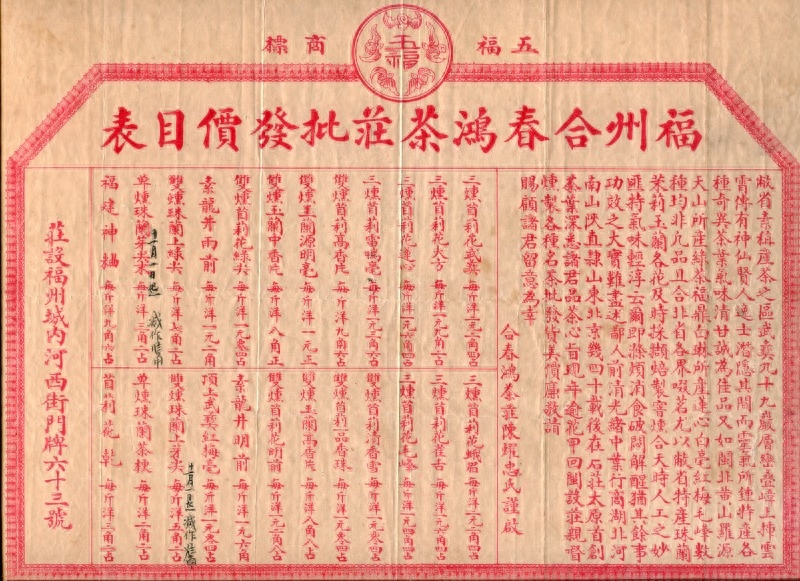 五福
商標
五福
福州合春鴻茶莊批發價目表
敝省素稱產茶之區武彝九十九巖層巒疊嶂上揷雲
霄傳有神仙賢人逸士潛隱其間而靈氣所鍾特產各
種奇異茶葉氣味清甘誠為佳品又如閩北告山羅源
天山所產綠茶福鼎白琳所產蓮心白毫紅梅毛峰數
種均非凡品且合北省各界啜茗尤以敝省特產珠蘭
茉莉玉蘭各花及時採擷焙製窨燻合天時人工之妙
匪特氣味輕淳云爾即滌煩消食破悶解酲猶其餘事
功效之大實難盡述鄙人前清光緒中葉行商湖北河
南山陝直隸山東北京幾四十載後在石莊太原首創
茶葉深悉諸君品茶心旨現年逾花甲回閩設莊親督
燻製各種名茶批發貨美價廉敬請
賜顧諸君留意為幸
合春鴻茶莊陳耀忠氏謹啟
三燻首莉花武彝 每斤洋一元二角四占
三燻首莉花大方 每斤洋一元一角六占
三燻首莉花蓮心 每斤洋一元一角四占
三燻首莉 每斤洋一元二角
雙燻首莉高香片 每斤洋九角六占
雙燻玉蘭源明毫 每斤洋一元正
雙燻玉蘭中香片 每斤洋八角正
雙燻首莉花綠尖 每斤洋一元零四占
素龍井雨前 每斤洋一元二角
雙燻珠蘭上綠尖 每斤洋七角二占
十一月一日起 減作
單燻珠蘭芽末 每斤洋三角二占
福建神麯 每斤洋九角六占
三燻首莉花峨眉 每斤洋一元二角四占
三燻首莉花雀舌 每斤洋一元零四占
三燻首莉花毛峰 每斤洋一元零四占
雙燻首莉清香雪 每斤洋一元零四占
雙燻首莉品香珠 每斤洋一元零四占
雙燻玉蘭高香片 每斤洋八角八占
雙燻首莉花明前 每斤洋一元一角八占
素龍井明前 每斤洋一元六角
頂上武彝紅梅毫 每斤洋一元零四占
雙燻珠蘭上芽尖 每斤洋五角二占
十一月一日起 減作
單燻珠蘭茶梗 每斤洋二角二占
首莉花乾 每斤洋三角二占
莊設福州城內河西街門牌六十三號